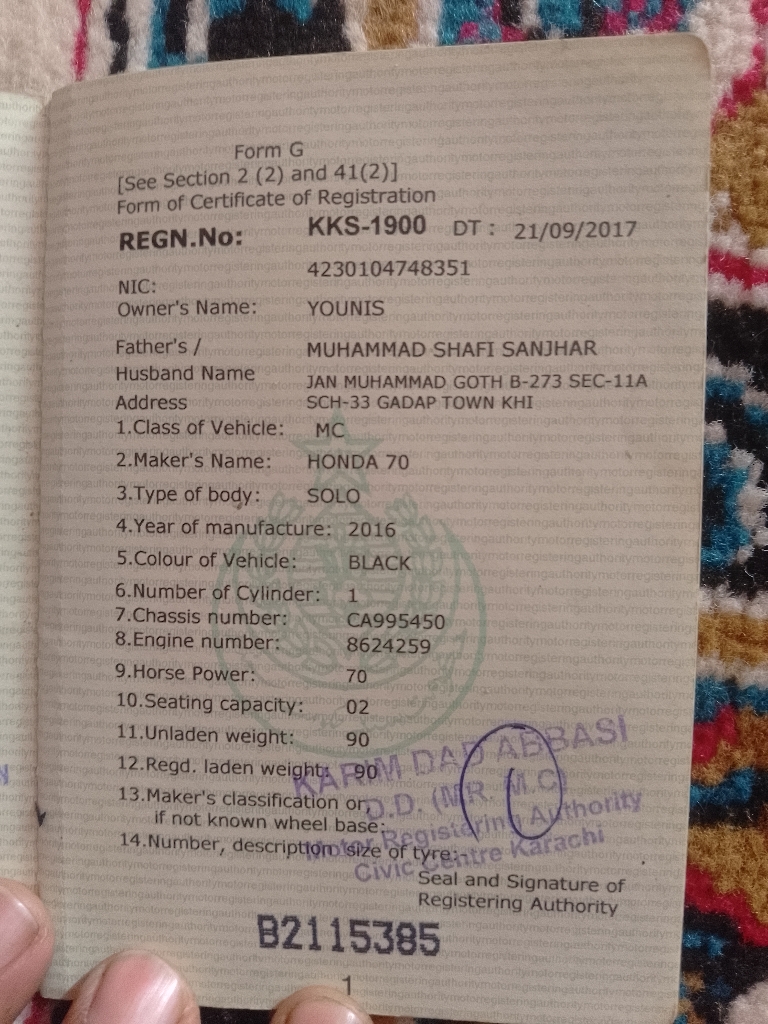 Form G
[See Section 2 (2) and 41(2)]
Form of Certificate of Registration
REGN.No: KKS-1900 DT : 21/09/2017
NIC: 4230104748351
Owner's Name: YOUNIS
Father's / MUHAMMAD SHAFI SANJHAR
Husband Name
JAN MUHAMMAD GOTH B-273 SEC-11A
Address SCH-33 GADAP TOWN KHI
1.Class of Vehicle: MC
2.Maker's Name: HONDA 70
3.Type of body: SOLO
4.Year of manufacture: 2016
5.Colour of Vehicle: BLACK
6.Number of Cylinder: 1
7.Chassis number: CA995450
8.Engine number: 8624259
9.Horse Power: 70
10.Seating capacity: 02
11.Unladen weight: 90
12.Regd. laden weight: 90
13.Maker's classification or,
if not known wheel base:
14.Number, description size of tyre:
KARIM DAD ABBASI
D.D. (MR. M.C)
Motor Registering Authority
Civic Centre Karachi
Seal and Signature of
Registering Authority
B2115385
1